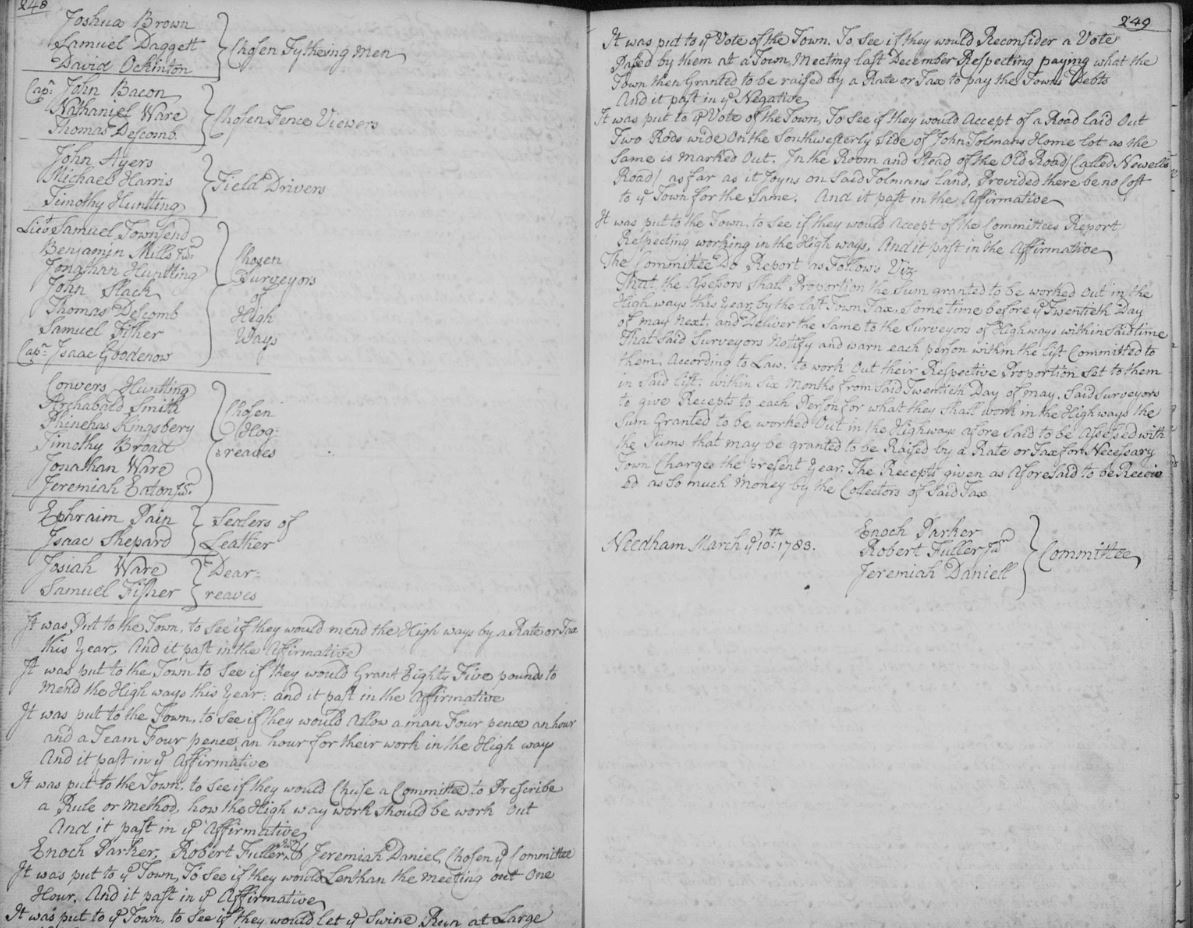 248
Joshua Brown
Samuel Daggett
David Ockinton
Chosen Tytheing Men
Cap:ⁿ John Bacon
Nathaniel Ware
Thomas Descomb
Chosen Fence Viewers
John Ayers
Michael Harris
Timothy Huntting
Field Drivers
Lieu:ᵗ Samuel Townsend
Benjamin Mills Jʳ
Jonathan Huntting
John Slack
Thomas Descomb
Samuel Fisher
Cap:ⁿ Isaac Goodenow
Chosen
Surveyors
of
High
Ways
Convers Huntting
Archabald Smith
Phinehas Kingsbery
Timothy Broad
Jonathan Ware
Jeremiah Eaton Jʳ
Chosen
Hog-
reaves
Ephraim Pain
Isaac Shepard
Sealers of
Leather
Josiah Ware
Samuel Fisher
Dear-
reaves
It was Put to the Town, to See if they would mend the High ways by a Rate or Tax
this Year, And it past in the Affirmative
It was put to the Town to See if they would Grant Eighty Five pounds to
mend the High ways this Year: and it past in the Affirmative
It was put to the Town, to See if they would Allow a man Four pence an hour
and a Team Four pence, an hour for their work in the High ways
And it past in yᵉ Affirmative
It was put to the Town, to See if they would Chuse a Committe to Prescribe
a Rule or method, how the High way work should be work out
And it past in yᵉ Affirmative
Enoch Parker, Robert Fuller Jʳ & Jeremiah Daniel Chosen yᵉ Committee
It was put to yᵉ Town, To See if they would Lenthan the meeting out One
Hour, And it past in yᵉ Affirmative
It was put to yᵉ Town, to See if they would let yᵉ Swine Run at Large
249
It was put to yᵉ Vote of the Town. To See if they would Reconsider a Vote
Passed by them at a Town Meeting last December Respecting paying what the
Town then Granted to be raised by a Rate or Tax to pay the Towns Debts
And it past in yᵉ Negative
It was put to yᵉ Vote of the Town, To See if they would Accept of a Road laid Out
Two Rods wide On the Southwesterly Side of John Tolmans Home Lot as the
Same is marked Out. In the Room and Stead of the Old Road (Called Newells
Road) as far as it Joyns on Said Tolmans land, Provided there be no Cost
to yᵉ Town for the Same. And it past in the Affirmative
It was put to the Town, to See if they would Accept of the Committees Report
Respecting working in the High ways. And it past in the Affirmative
The Committee Do Report as Follows Viz
That, the Assessors Shall Proportion the Sum granted to be worked out in the
High ways this Year, by the last Town Tax, Some time before yᵉ Twentieth Day
of may Next, and Deliver the Same to the Surveyors of High ways within Said time
That Said Surveyors Notify and warn each person within the list Committed to
them, According to Law. to work Out their Respective Proportion Set to them
in Said list: within Six Months from Said Twentieth Day of may. Said Surveyors
to give Recepts to each Person for what they Shall work in the Highways the
Sum Granted to be worked Out in the Highways afore Said to be Assessed with
the Sums that may be granted to be Raised by a Rate or Tax for Necessary
Town Charges the present Year. The Recepts given as afore Said to be Receiv
ed as So much Money by the Collectors of Said Tax
Needham March yᵉ 10ᵗʰ: 1783.
Enoch Parker
Robert Fuller Jʳ
Jeremiah Daniell
Committee